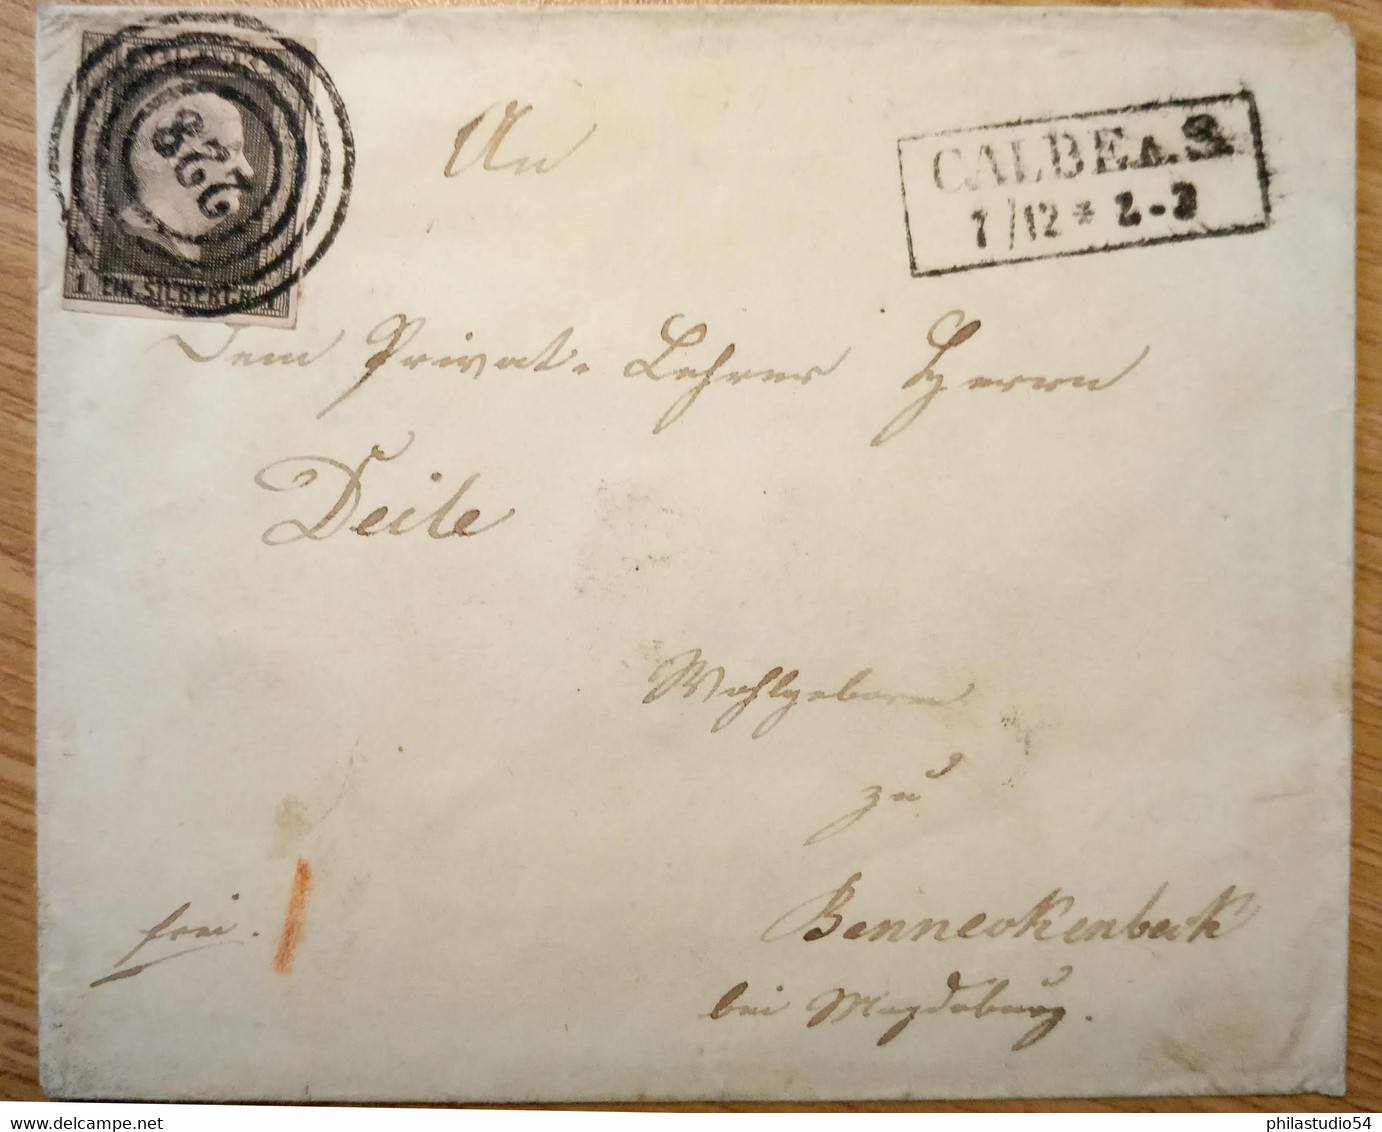 228
1 EIN SILBERGR. 1
CALBE A.S.
7/12 * 2-3
An
Dem Privat-Lehrer Herrn
Deile
Wohlgeboren
zu
Benneckenbeck
bei Magdeburg.
frei.
www.delcampe.net
philastudio54